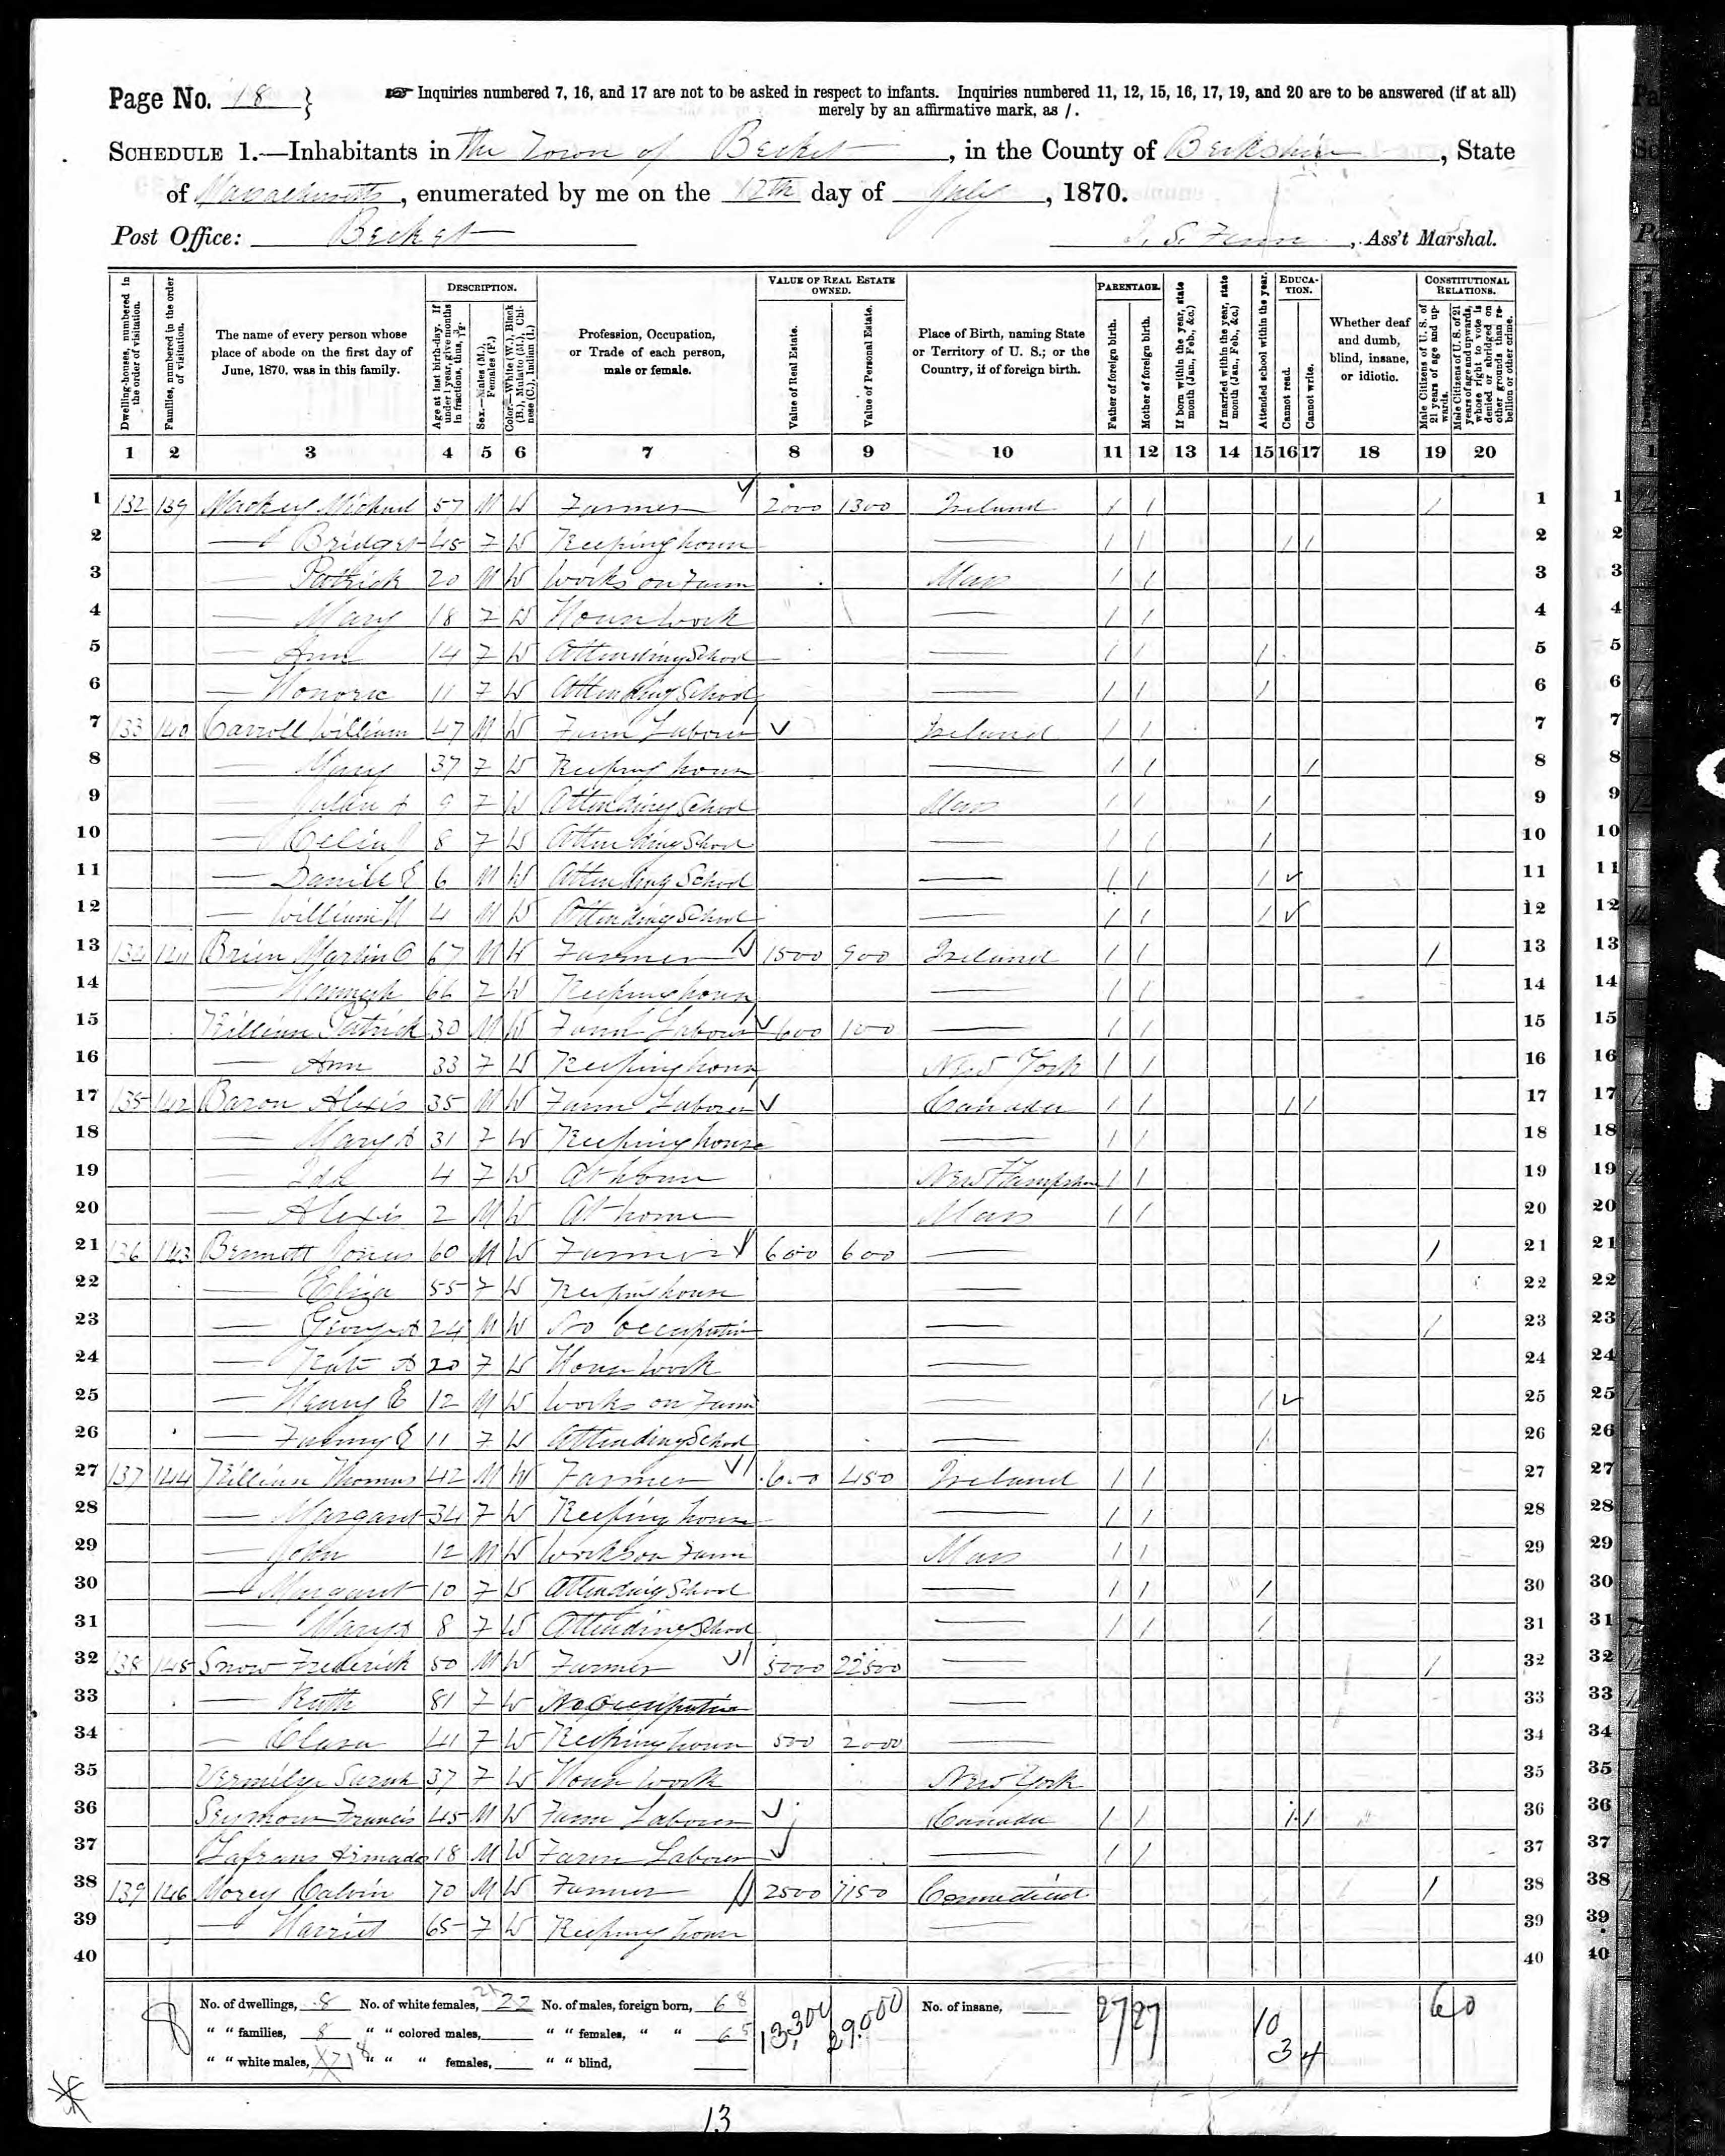 Page No. 18 }
☞ Inquiries numbered 7, 16, and 17 are not to be asked in respect to infants. Inquiries numbered 11, 12, 15, 16, 17, 19, and 20 are to be answered (if at all)
merely by an affirmative mark, as /.
SCHEDULE 1.—Inhabitants in The Town of Becket, in the County of Berkshire, State
of Massachusetts, enumerated by me on the 12th day of July, 1870.
Post Office: Becket
Ass't Marshal.
Dwelling-houses, numbered in the order of visitation.
Families, numbered in the order of visitation.
The name of every person whose place of abode on the first day of June, 1870, was in this family.
DESCRIPTION.
Age at last birth-day. If under 1 year, give months in fractions, thus, 3/12.
Sex.—Males (M.), Females (F.)
Color.—White (W.), Black (B.), Mulatto (M.), Chinese (C.), Indian (I.)
Profession, Occupation, or Trade of each person, male or female.
VALUE OF REAL ESTATE OWNED.
Value of Real Estate.
Value of Personal Estate.
Place of Birth, naming State or Territory of U. S.; or the Country, if of foreign birth.
PARENTAGE.
Father of foreign birth.
Mother of foreign birth.
If born within the year, state month (Jan., Feb., &c.)
If married within the year, state month (Jan., Feb., &c.)
Attended school within the year.
EDUCATION.
Cannot read.
Cannot write.
Whether deaf and dumb, blind, insane, or idiotic.
CONSTITUTIONAL RELATIONS.
Male Citizens of U. S. of 21 years of age and upwards.
Male Citizens of U. S. of 21 years of age and upwards, whose right to vote is denied or abridged on other grounds than rebellion or other crime.
1 2 3 4 5 6 7 8 9 10 11 12 13 14 15 16 17 18 19 20
1 132 139 Mackey Michael 57 M W Farmer 2000 1300 Ireland / / / 1
2 — Bridget 45 F W Keeping house — / / / / 2
3 — Patrick 20 M W Works on Farm Mass / / 3
4 — Mary 18 F W House Work — / / 4
5 — Ann 14 F W Attending School — / / / 5
6 — Honora 11 F W Attending School — / / / 6
7 133 140 Carroll William 47 M W Farm Labourer Ireland / / 7
8 — Mary 37 F W Keeping house — / / / 8
9 — A 9 F W Attending School Mass / / / 9
10 — Celia 8 F W Attending School — / / / 10
11 — Daniel E 6 M W Attending School — / / / ✓ 11
12 — William H 4 M W Attending School — / / / ✓ 12
13 134 141 Brien Martin O 67 M W Farmer 1500 900 Ireland / / / 13
14 — Hannah 66 F W Keeping house — / / 14
15 Killian Patrick 30 M W Farm Labourer 600 100 — / / 15
16 — Ann 33 F W Keeping house New York / / 16
17 135 142 Baron Alexis 35 M W Farm Laborer Canada / / / / 17
18 — Mary A 31 F W Keeping house — / / 18
19 — Ida 4 F W At home New Hampshire / / 19
20 — Alexis 2 M W At home Mass / / 20
21 136 143 Bennett 60 M W Farmer 600 600 — / 21
22 — Eliza 55 F W Keeping house — 22
23 — George A 24 M W No occupation — / 23
24 — Kate A 20 F W House Work — 24
25 — Henry E 12 M W Works on Farm — / ✓ 25
26 — Fanny E 11 F W Attending School — / 26
27 137 144 Killian Thomas 42 M W Farmer 600 450 Ireland / / 27
28 — Margaret 34 F W Keeping house — / / 28
29 — John 12 M W Works on Farm Mass / / 29
30 — Margaret 10 F W Attending School — / / / 30
31 — Mary A 8 F W Attending School — / / / 31
32 138 145 Snow Frederick 50 M W Farmer 5000 22500 — / 32
33 — Ruth 81 F W No Occupation — 33
34 — Clara 41 F W Keeping house 500 2000 — 34
35 Vermilya Sarah 37 F W House Work New York 35
36 Seymour Francis 45 M W Farm Labourer Canada / / / / 36
37 Armada 18 M W Farm Labourer — / / 37
38 139 146 Morey Calvin 70 M W Farmer 2500 1150 Connecticut / 38
39 — Harriet 65 F W Keeping house — 39
40 40
No. of dwellings, 8 No. of white females, 22 No. of males, foreign born, 6 8 13,300 29,000 No. of insane, 27 27 10 6 0
" " families, 8 " " colored males, " " females, " " 6 5 3 4
" " white males, 18 " " " females, " " blind,
13